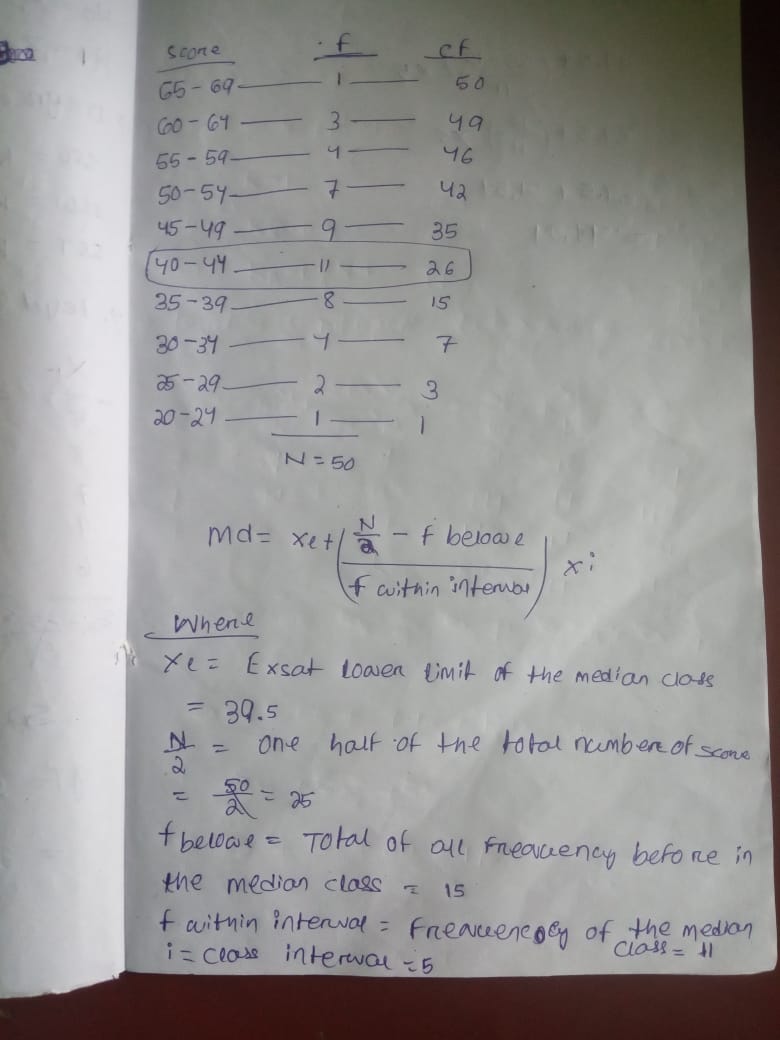 Score f cf
65-69 1 50
60-64 3 49
55-59 4 46
50-54 7 42
45-49 9 35
40-44 11 26
35-39 8 15
30-34 4 7
25-29 2 3
20-24 1 1
N = 50
Md = xe + (N/2 - f belowe / f within interval) x i
Where
xe = Exsat lower limit of the median class
= 39.5
N/2 = one half of the total numbere of score
= 50/2 = 25
f belowe = Total of all frequency before in
the median class = 15
f within interval = Frequency of the median
class = 11
i = class interval = 5